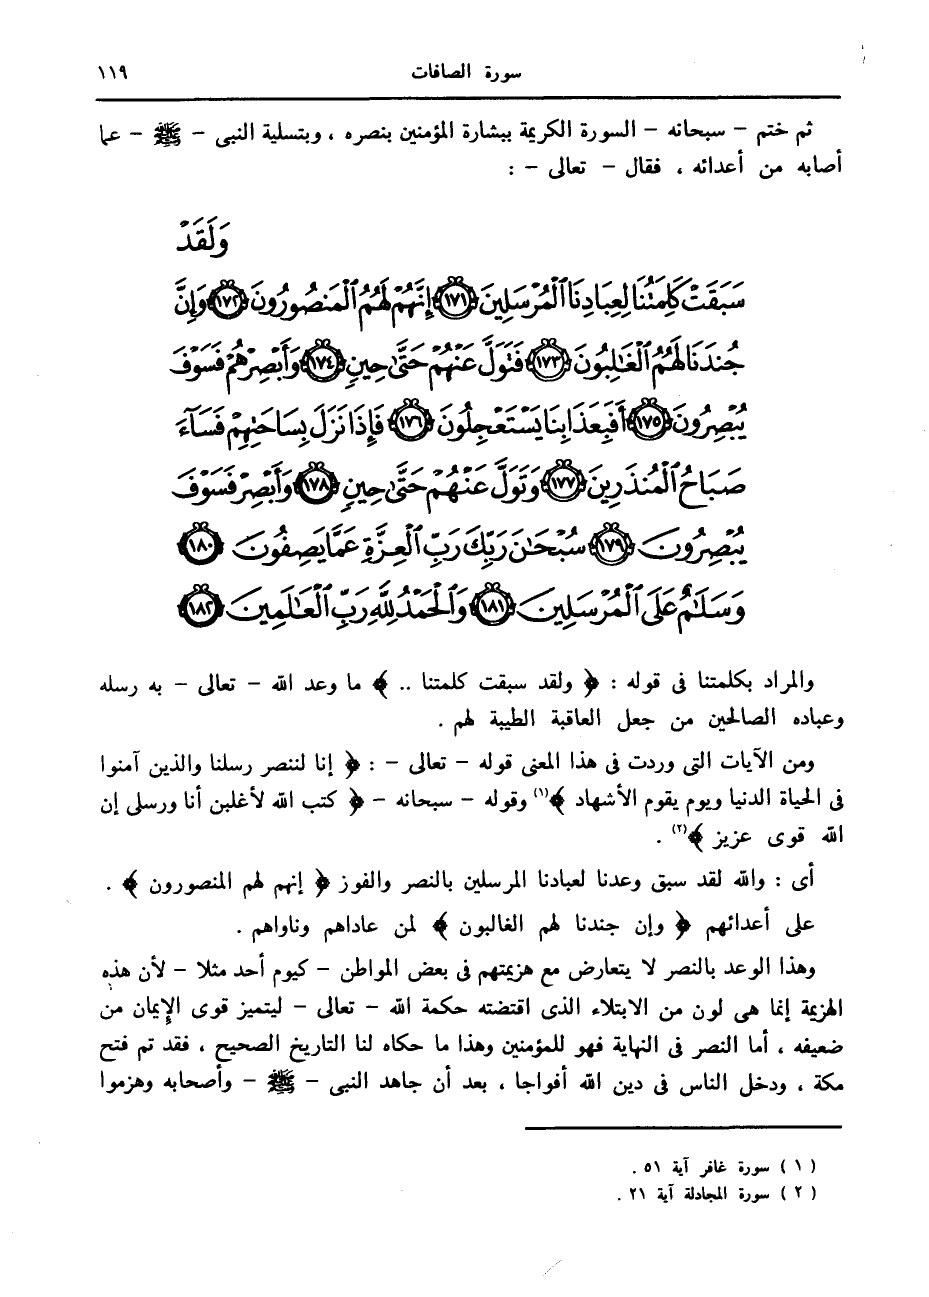 سورة الصافات ١١٩
ثم ختم – سبحانه – السورة الكريمة ببشارة المؤمنين بنصره ، وبتسلية النبى – ﷺ – عما
أصابه من أعدائه ، فقال – تعالى – :
وَلَقَدْ
سَبَقَتْ كَلِمَتُنَا لِعِبَادِنَا ٱلْمُرْسَلِينَ ١٧١ إِنَّهُمْ لَهُمُ ٱلْمَنصُورُونَ ١٧٢ وَإِنَّ
جُندَنَا لَهُمُ ٱلْغَٰلِبُونَ ١٧٣ فَتَوَلَّ عَنْهُمْ حَتَّىٰ حِينٍ ١٧٤ وَأَبْصِرْهُمْ فَسَوْفَ
يُبْصِرُونَ ١٧٥ أَفَبِعَذَابِنَا يَسْتَعْجِلُونَ ١٧٦ فَإِذَا نَزَلَ بِسَاحَتِهِمْ فَسَآءَ
صَبَاحُ ٱلْمُنذَرِينَ ١٧٧ وَتَوَلَّ عَنْهُمْ حَتَّىٰ حِينٍ ١٧٨ وَأَبْصِرْ فَسَوْفَ
يُبْصِرُونَ ١٧٩ سُبْحَٰنَ رَبِّكَ رَبِّ ٱلْعِزَّةِ عَمَّا يَصِفُونَ ١٨٠
وَسَلَٰمٌ عَلَى ٱلْمُرْسَلِينَ ١٨١ وَٱلْحَمْدُ لِلَّهِ رَبِّ ٱلْعَٰلَمِينَ ١٨٢
والمراد بكلمتنا فى قوله : ﴿ ولقد سبقت كلمتنا .. ﴾ ما وعد الله – تعالى – به رسله
وعباده الصالحين من جعل العاقبة الطيبة لهم .
ومن الآيات التى وردت فى هذا المعنى قوله – تعالى – : ﴿ إنا لننصر رسلنا والذين آمنوا
فى الحياة الدنيا ويوم يقوم الأشهاد ﴾(١) وقوله – سبحانه – ﴿ كتب الله لأغلبن أنا ورسلى إن
الله قوى عزيز ﴾(٢) .
أى : والله لقد سبق وعدنا لعبادنا المرسلين بالنصر والفوز ﴿ إنهم لهم المنصورون ﴾ .
على أعدائهم ﴿ وإن جندنا لهم الغالبون ﴾ لمن عاداهم وناواهم .
وهذا الوعد بالنصر لا يتعارض مع هزيمتهم فى بعض المواطن – كيوم أحد مثلا – لأن هذه
الهزيمة إنما هى لون من الابتلاء الذى اقتضته حكمة الله – تعالى – ليتميز قوى الإيمان من
ضعيفه ، أما النصر فى النهاية فهو للمؤمنين وهذا ما حكاه لنا التاريخ الصحيح ، فقد تم فتح
مكة ، ودخل الناس فى دين الله أفواجا ، بعد أن جاهد النبى – ﷺ – وأصحابه وهزموا
( ١ ) سورة غافر آية ٥١ .
( ٢ ) سورة المجادلة آية ٢١ .